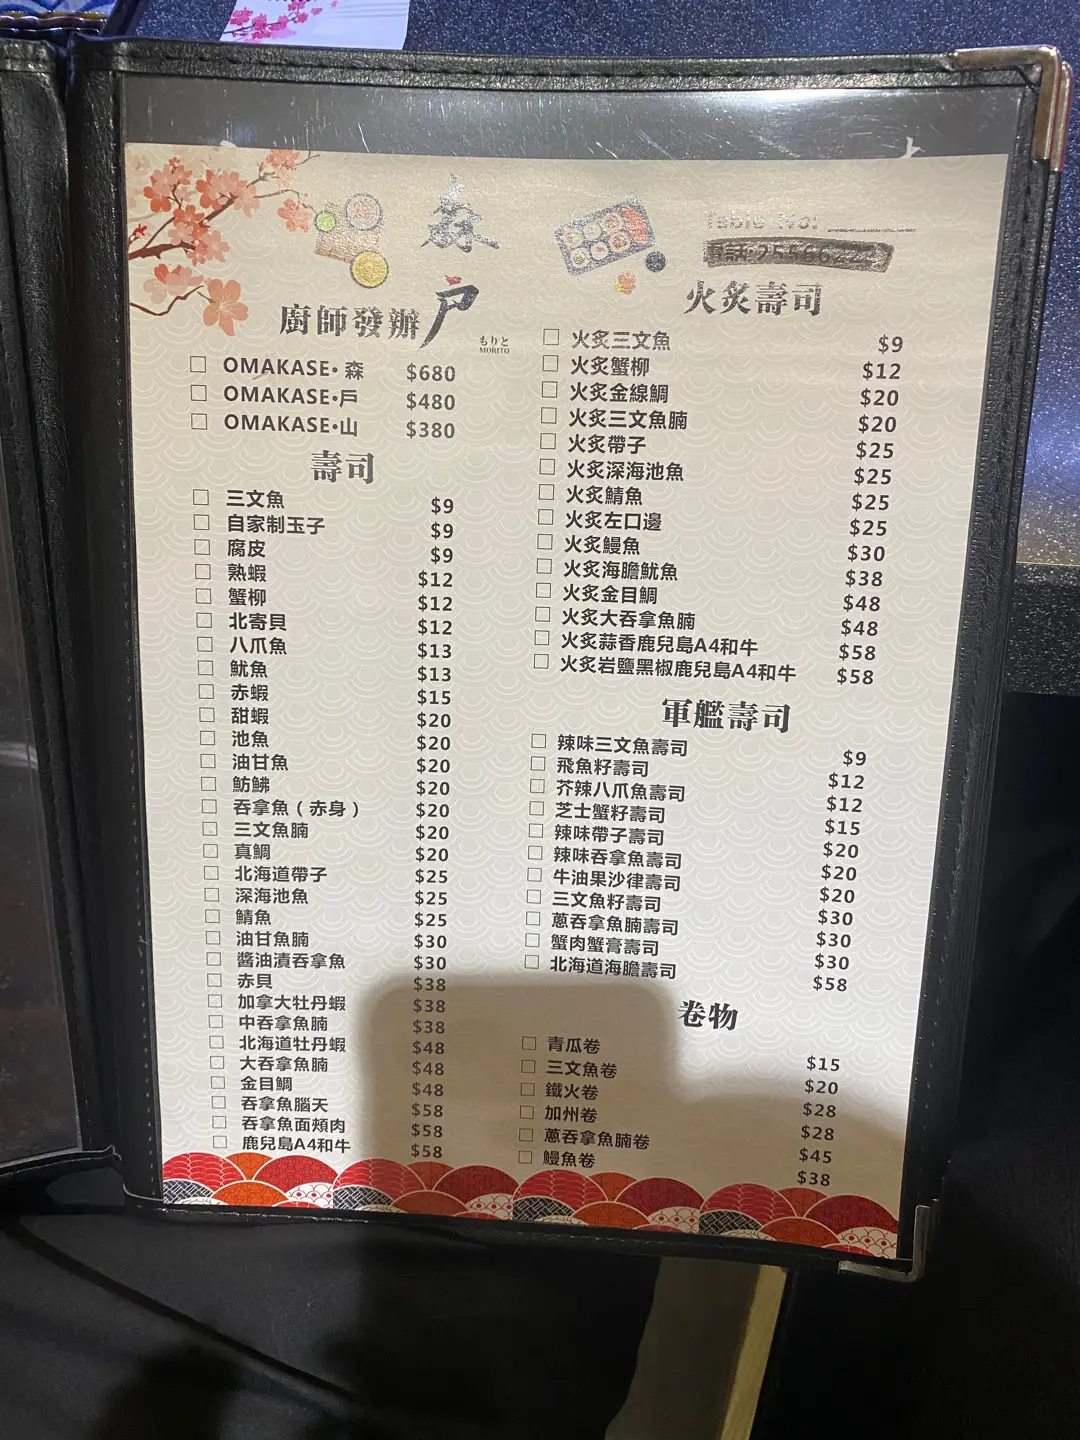 森戶
もりと
MORITO
Table No:
電話:25566222
廚師發辦
OMAKASE•森 $680
OMAKASE•戶 $480
OMAKASE•山 $380
壽司
三文魚 $9
自家制玉子 $9
腐皮 $9
熟蝦 $12
蟹柳 $12
北寄貝 $12
八爪魚 $13
魷魚 $13
赤蝦 $15
甜蝦 $20
池魚 $20
油甘魚 $20
魴鮄 $20
吞拿魚（赤身） $20
三文魚腩 $20
真鯛 $20
北海道帶子 $25
深海池魚 $25
鯖魚 $25
油甘魚腩 $30
醬油漬吞拿魚 $30
赤貝 $38
加拿大牡丹蝦 $38
中吞拿魚腩 $38
北海道牡丹蝦 $48
大吞拿魚腩 $48
金目鯛 $48
吞拿魚腦天 $58
吞拿魚面頰肉 $58
鹿兒島A4和牛 $58
火炙壽司
火炙三文魚 $9
火炙蟹柳 $12
火炙金線鯛 $20
火炙三文魚腩 $20
火炙帶子 $25
火炙深海池魚 $25
火炙鯖魚 $25
火炙左口邊 $25
火炙鰻魚 $30
火炙海膽魷魚 $38
火炙金目鯛 $48
火炙大吞拿魚腩 $48
火炙蒜香鹿兒島A4和牛 $58
火炙岩鹽黑椒鹿兒島A4和牛 $58
軍艦壽司
辣味三文魚壽司 $9
飛魚籽壽司 $12
芥辣八爪魚壽司 $12
芝士蟹籽壽司 $15
辣味帶子壽司 $20
辣味吞拿魚壽司 $20
牛油果沙律壽司 $20
三文魚籽壽司 $30
蔥吞拿魚腩壽司 $30
蟹肉蟹膏壽司 $30
北海道海膽壽司 $58
卷物
青瓜卷 $15
三文魚卷 $20
鐵火卷 $28
加州卷 $28
蔥吞拿魚腩卷 $45
鰻魚卷 $38